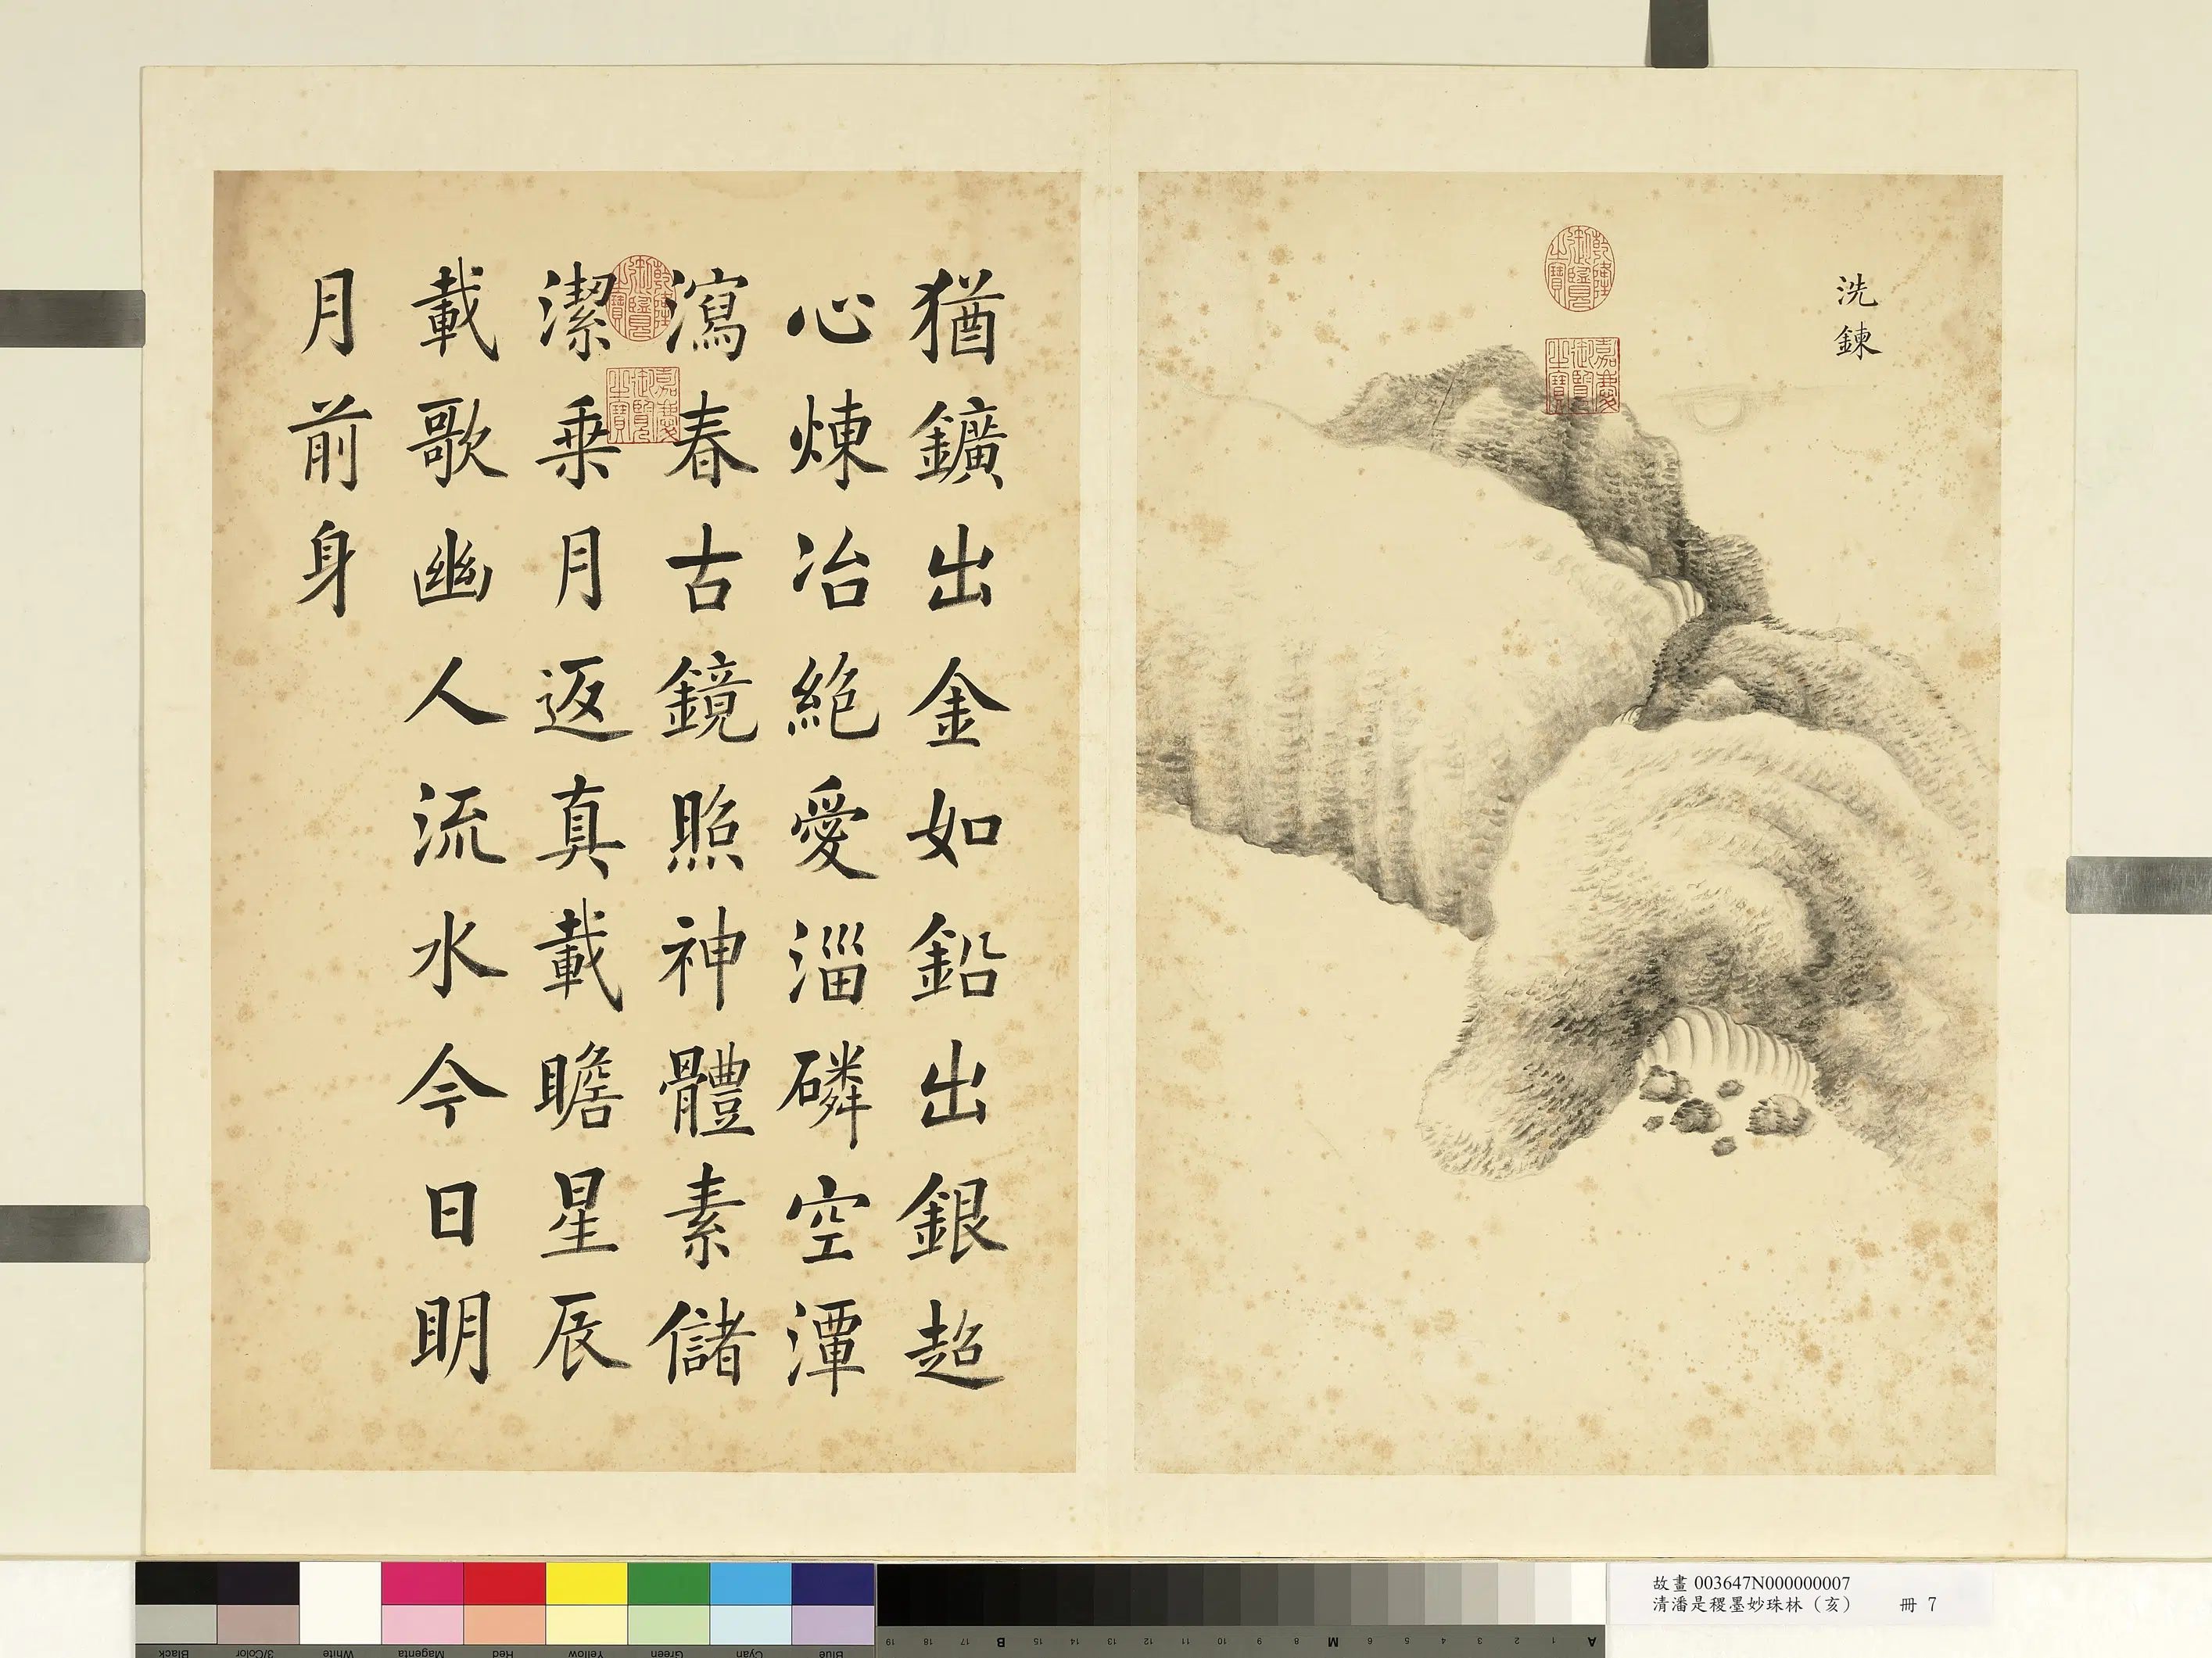 洗鍊
乾隆御覽之寶
嘉慶御覽之寶
猶鑛出金如鉛出銀超
心煉冶絕愛淄磷空潭
瀉春古鏡照神體素儲
潔乗月返真載瞻星辰
載歌幽人流水今日明
月前身
乾隆御覽之寶
嘉慶御覽之寶
故畫 003647N000000007
清潘是稷墨妙珠林（亥） 冊 7
Black 3/Color White Magenta Red Yellow Green Cyan Blue
19 18 17 B 15 14 13 12 11 10 9 8 M 6 5 4 3 2 1 A